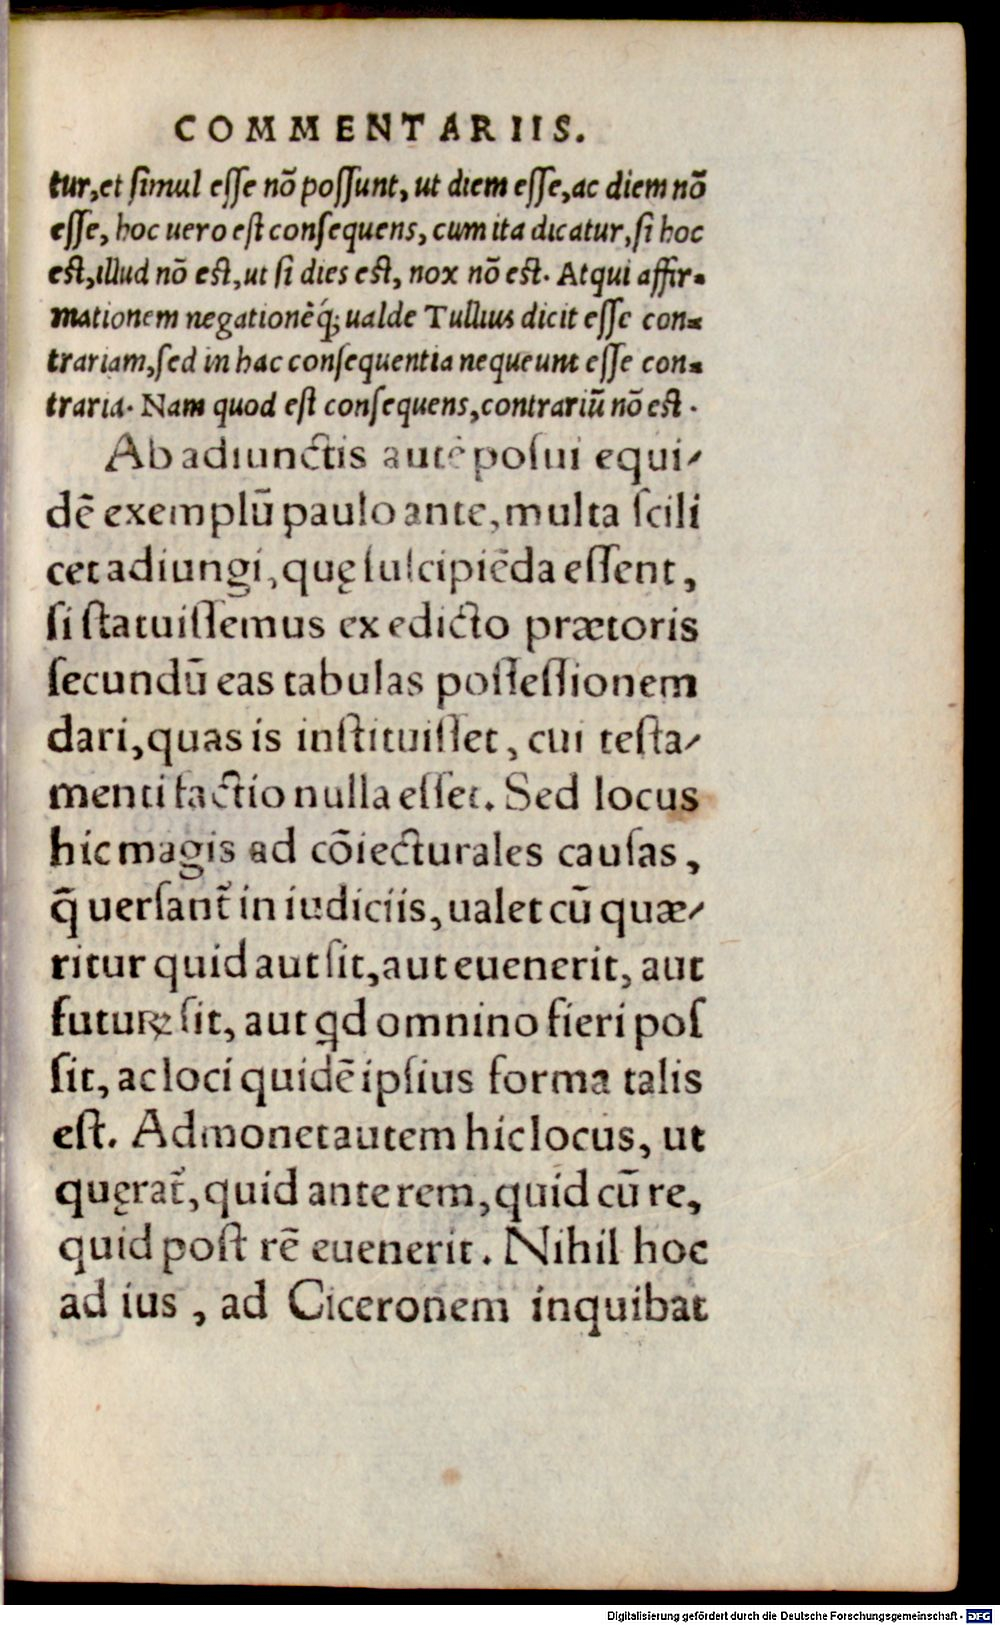 COMMENTARIIS.
tur, et ſimul eſſe nō poſſunt, ut diem eſſe, ac diem nō
eſſe, hoc uero eſt conſequens, cum ita dicatur, ſi hoc
eſt, illud nō eſt, ut ſi dies eſt, nox nō eſt. Atqui affir-
mationem negationēq́; ualde Tullius dicit eſſe con-
trariam, ſed in hac conſequentia nequeunt eſſe con-
traria. Nam quod eſt conſequens, contrariū nō eſt.
Ab adiunctis autē poſui equi-
dē exemplū paulo ante, multa ſcili
cet adiungi, quę ſuſcipiēda eſſent,
ſi ſtatuiſſemus ex edicto prætoris
ſecundū eas tabulas poſſeſſionem
dari, quas is inſtituiſſet, cui teſta-
menti factio nulla eſſet. Sed locus
hic magis ad cōiecturales cauſas,
q̄ uerſant᷑ in iudiciis, ualet cū quæ-
ritur quid aut ſit, aut euenerit, aut
futurꝝ ſit, aut qd omnino fieri poſ
ſit, ac loci quidē ipſius forma talis
eſt. Admonet autem hic locus, ut
quęrat᷑, quid ante rem, quid cū re,
quid poſt rē euenerit. Nihil hoc
ad ius, ad Ciceronem inquibat
Digitalisierung gefördert durch die Deutsche Forschungsgemeinschaft - DFG